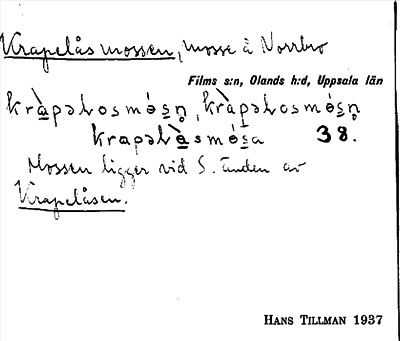 Krapelås mossen, mosse å Norrbo
Films s:n, Olands h:d, Uppsala län
kràpəɫosmósn̥, kràpəɫosmósn̥
krapəɫåsmósa 38.
Mossen ligger vid S. änden av
Krapelåsen.
HANS TILLMAN 1937